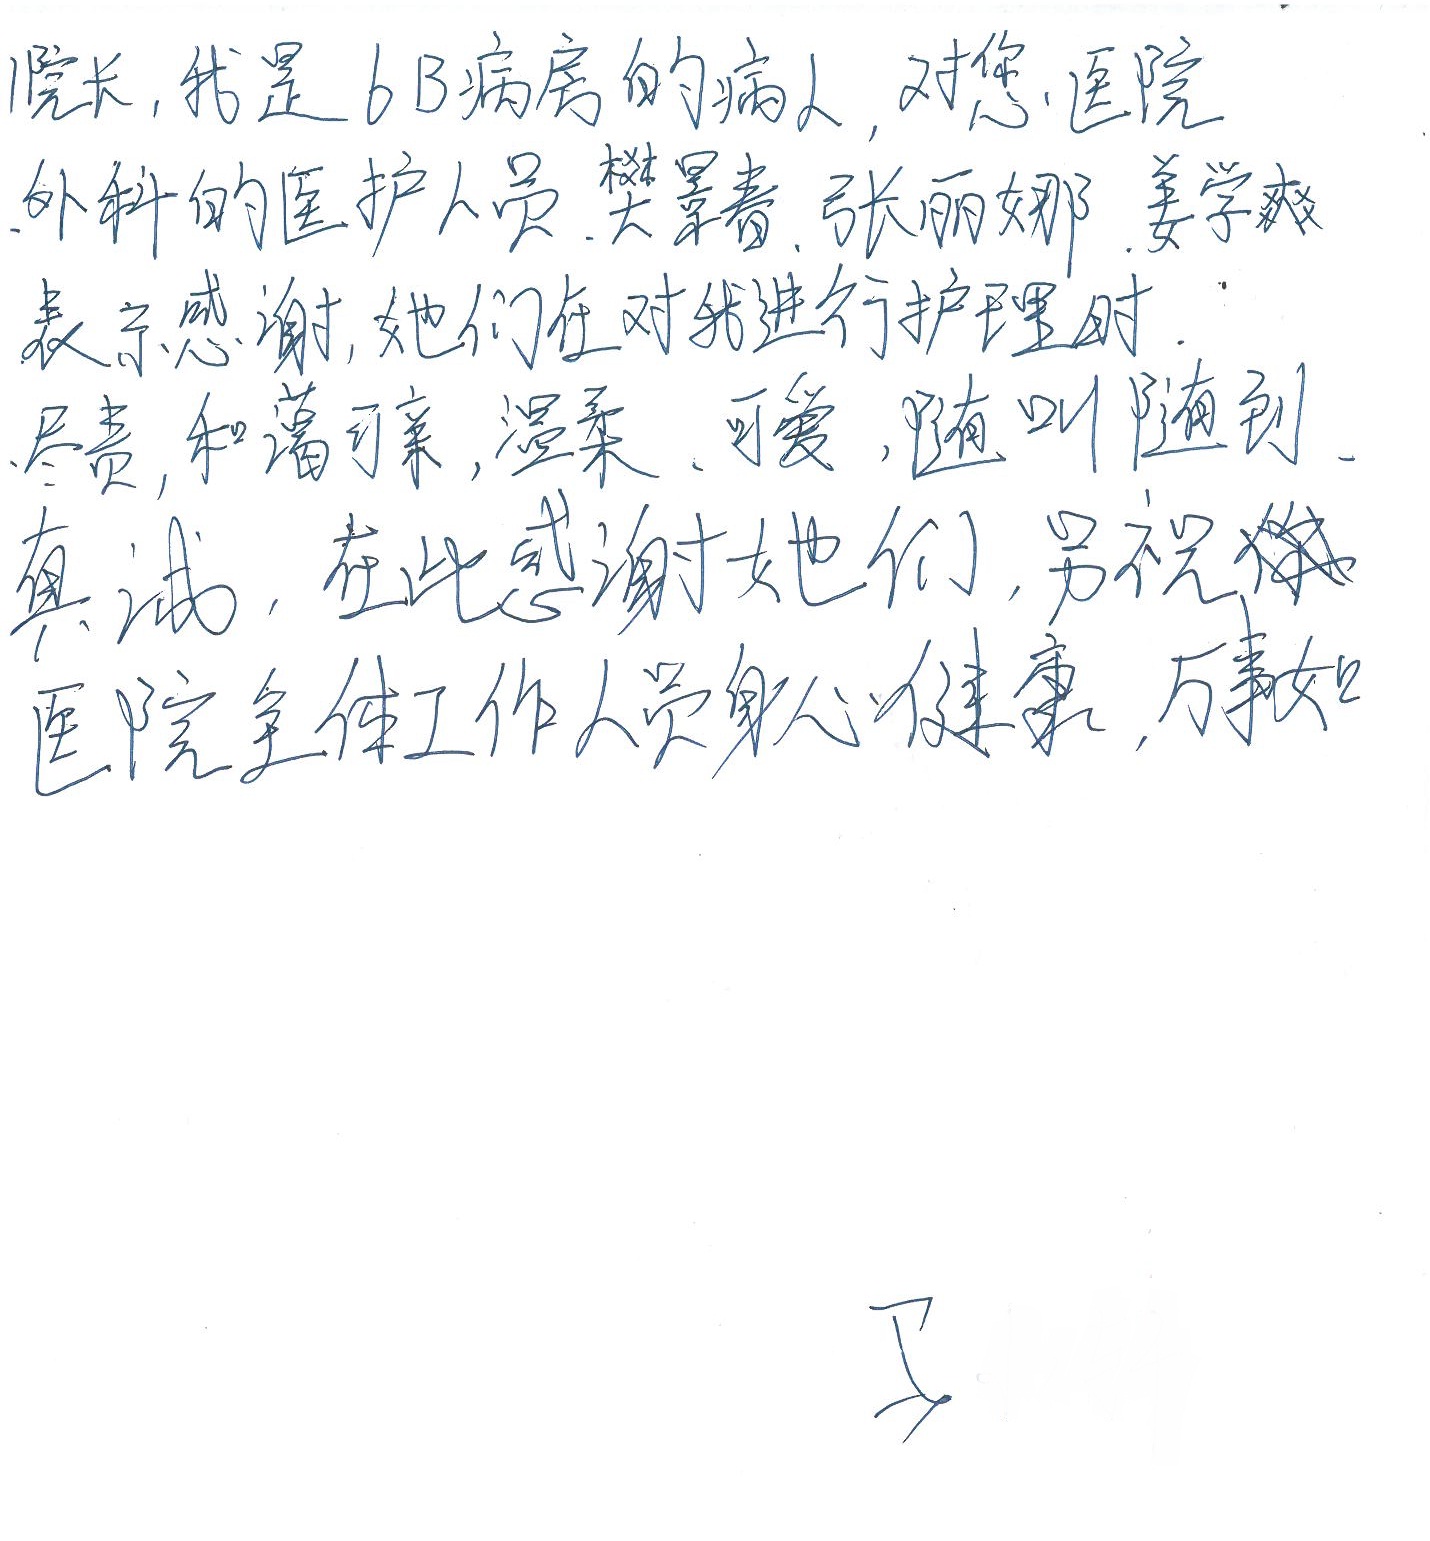 院长，我是6B病房的病人，对您医院
外科的医护人员、樊景春、张丽娜、姜学爽
表示感谢，她们在对我进行护理时、
尽责，和蔼可亲，温柔、可爱，随叫随到、
真诚，在此感谢她们，另祝
医院全体工作人员身心健康，万事如